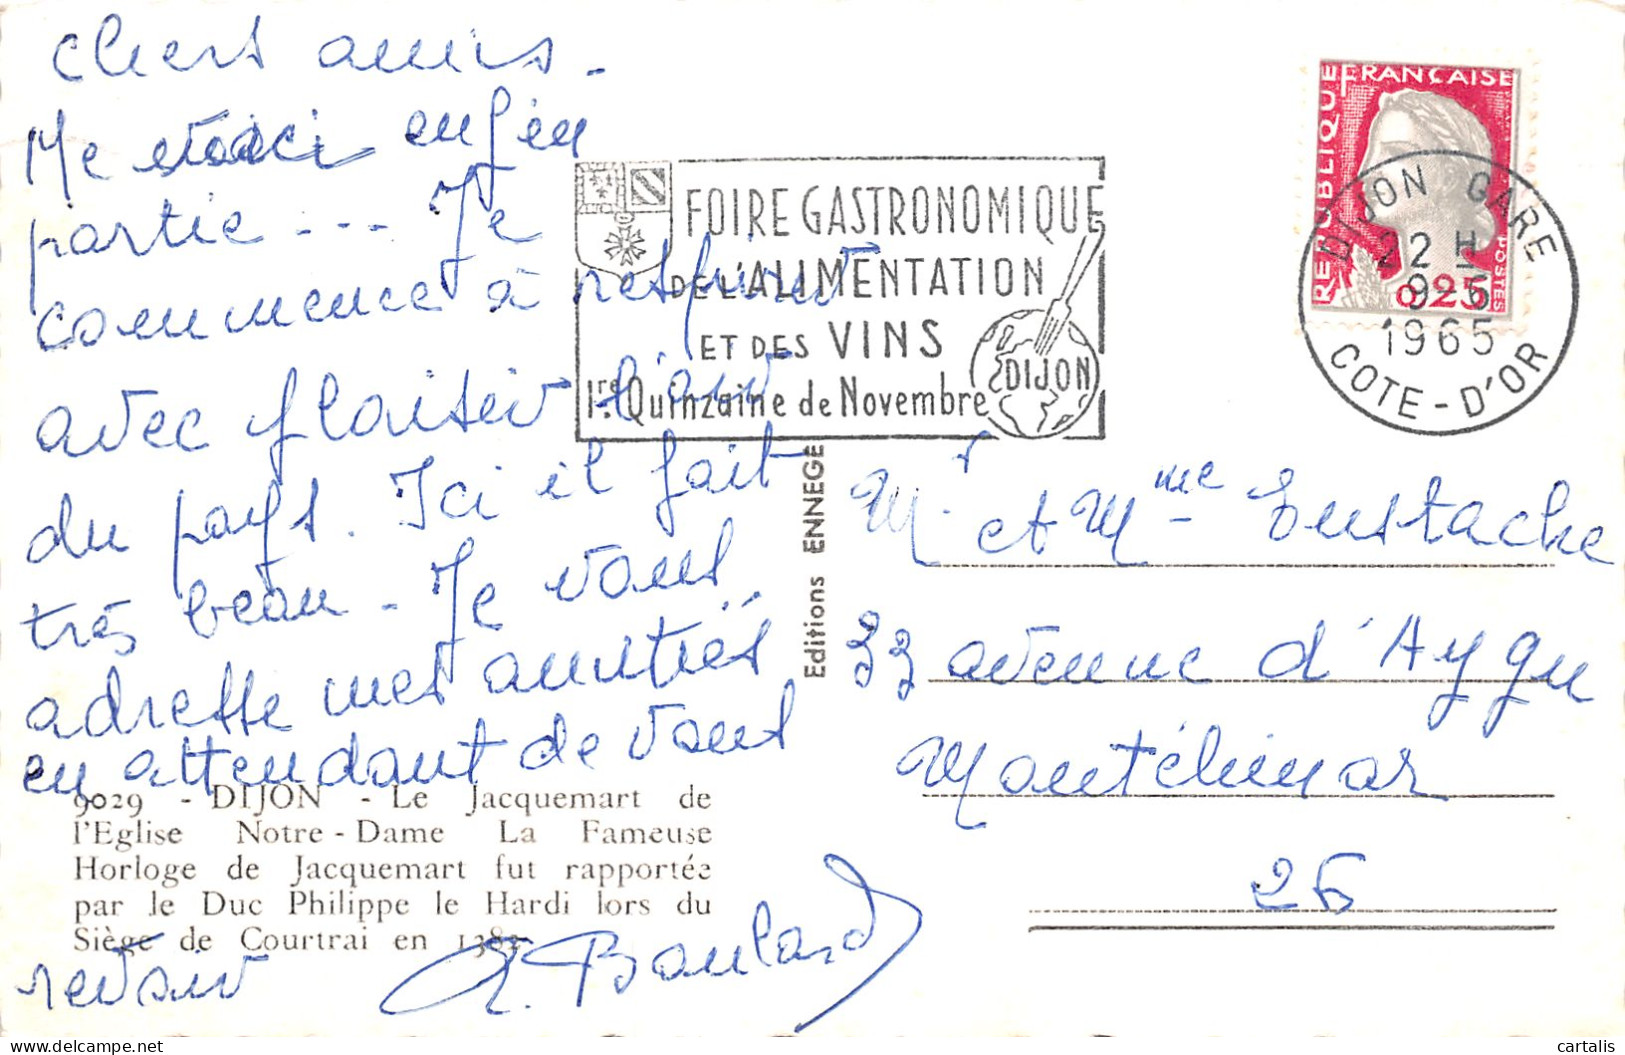 chers amis -
Me voici enfin
partie --- Je
commence à respirer
avec plaisir l'air
du pays. Ici il fait
très beau - Je vous
adresse mes amitiés
en attendant de vous
revoir
E. Boulard
9029 - DIJON - Le Jacquemart de
l'Eglise Notre-Dame La Fameuse
Horloge de Jacquemart fut rapportée
par le Duc Philippe le Hardi lors du
Siège de Courtrai en 1382
Editions ENNEGE
FOIRE GASTRONOMIQUE
DE L'ALIMENTATION
ET DES VINS
1re Quinzaine de Novembre
DIJON
REPUBLIQUE FRANÇAISE
POSTES
0,25
DIJON GARE
22 H
9-5
1965
COTE-D'OR
Mr et Mme Eustache
33 avenue d'Aygu
Montélimar
26
cartalis